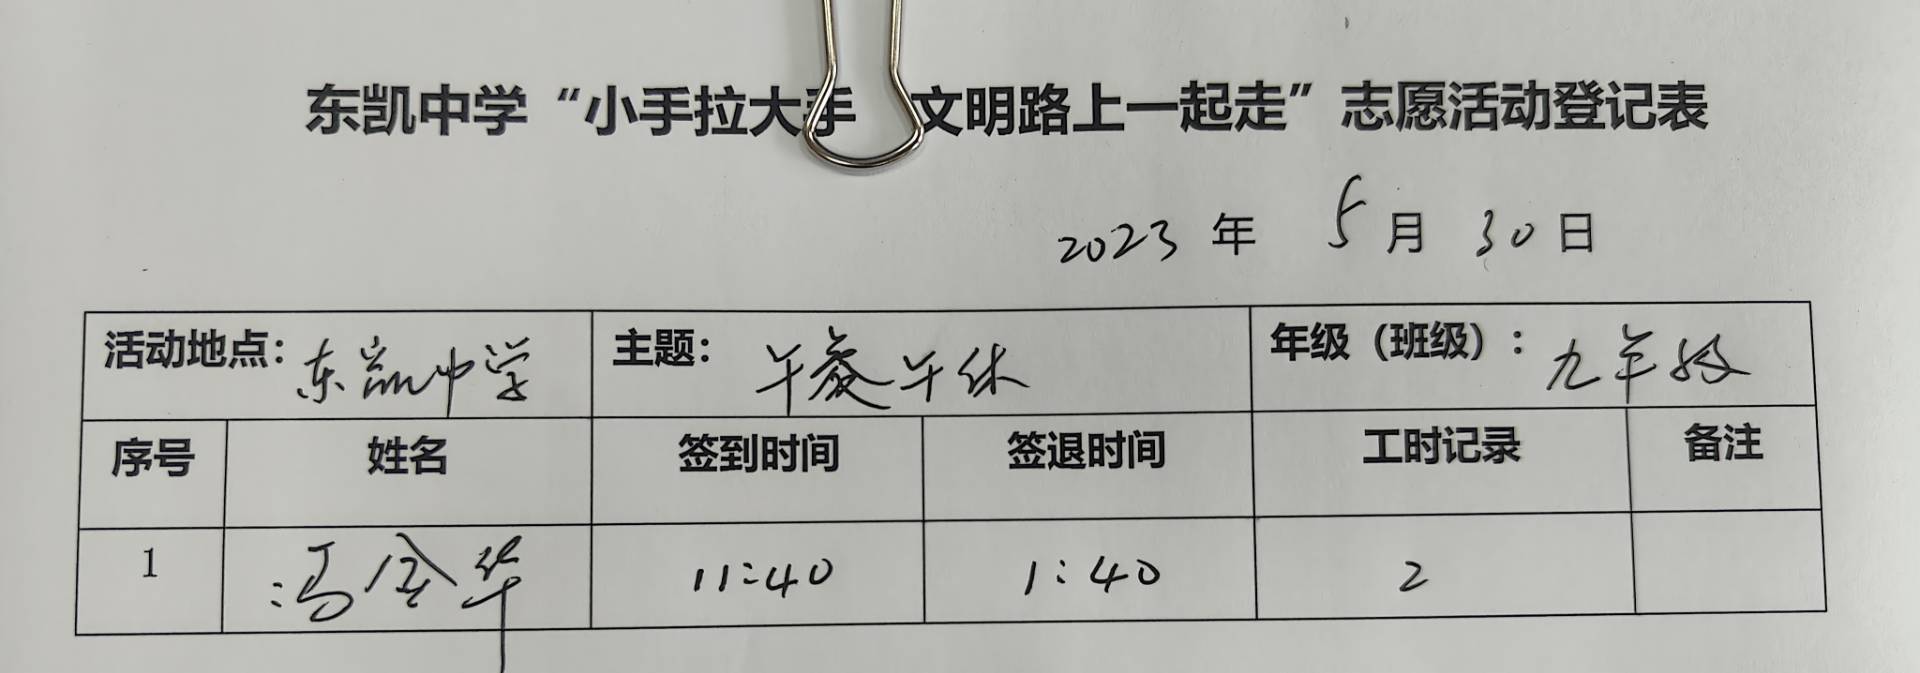 东凯中学“小手拉大手 文明路上一起走”志愿活动登记表
2023 年 5 月 30 日
活动地点：东凯中学 主题：午餐午休 年级（班级）：九年级
序号 姓名 签到时间 签退时间 工时记录 备注
1 冯金华 11:40 1:40 2